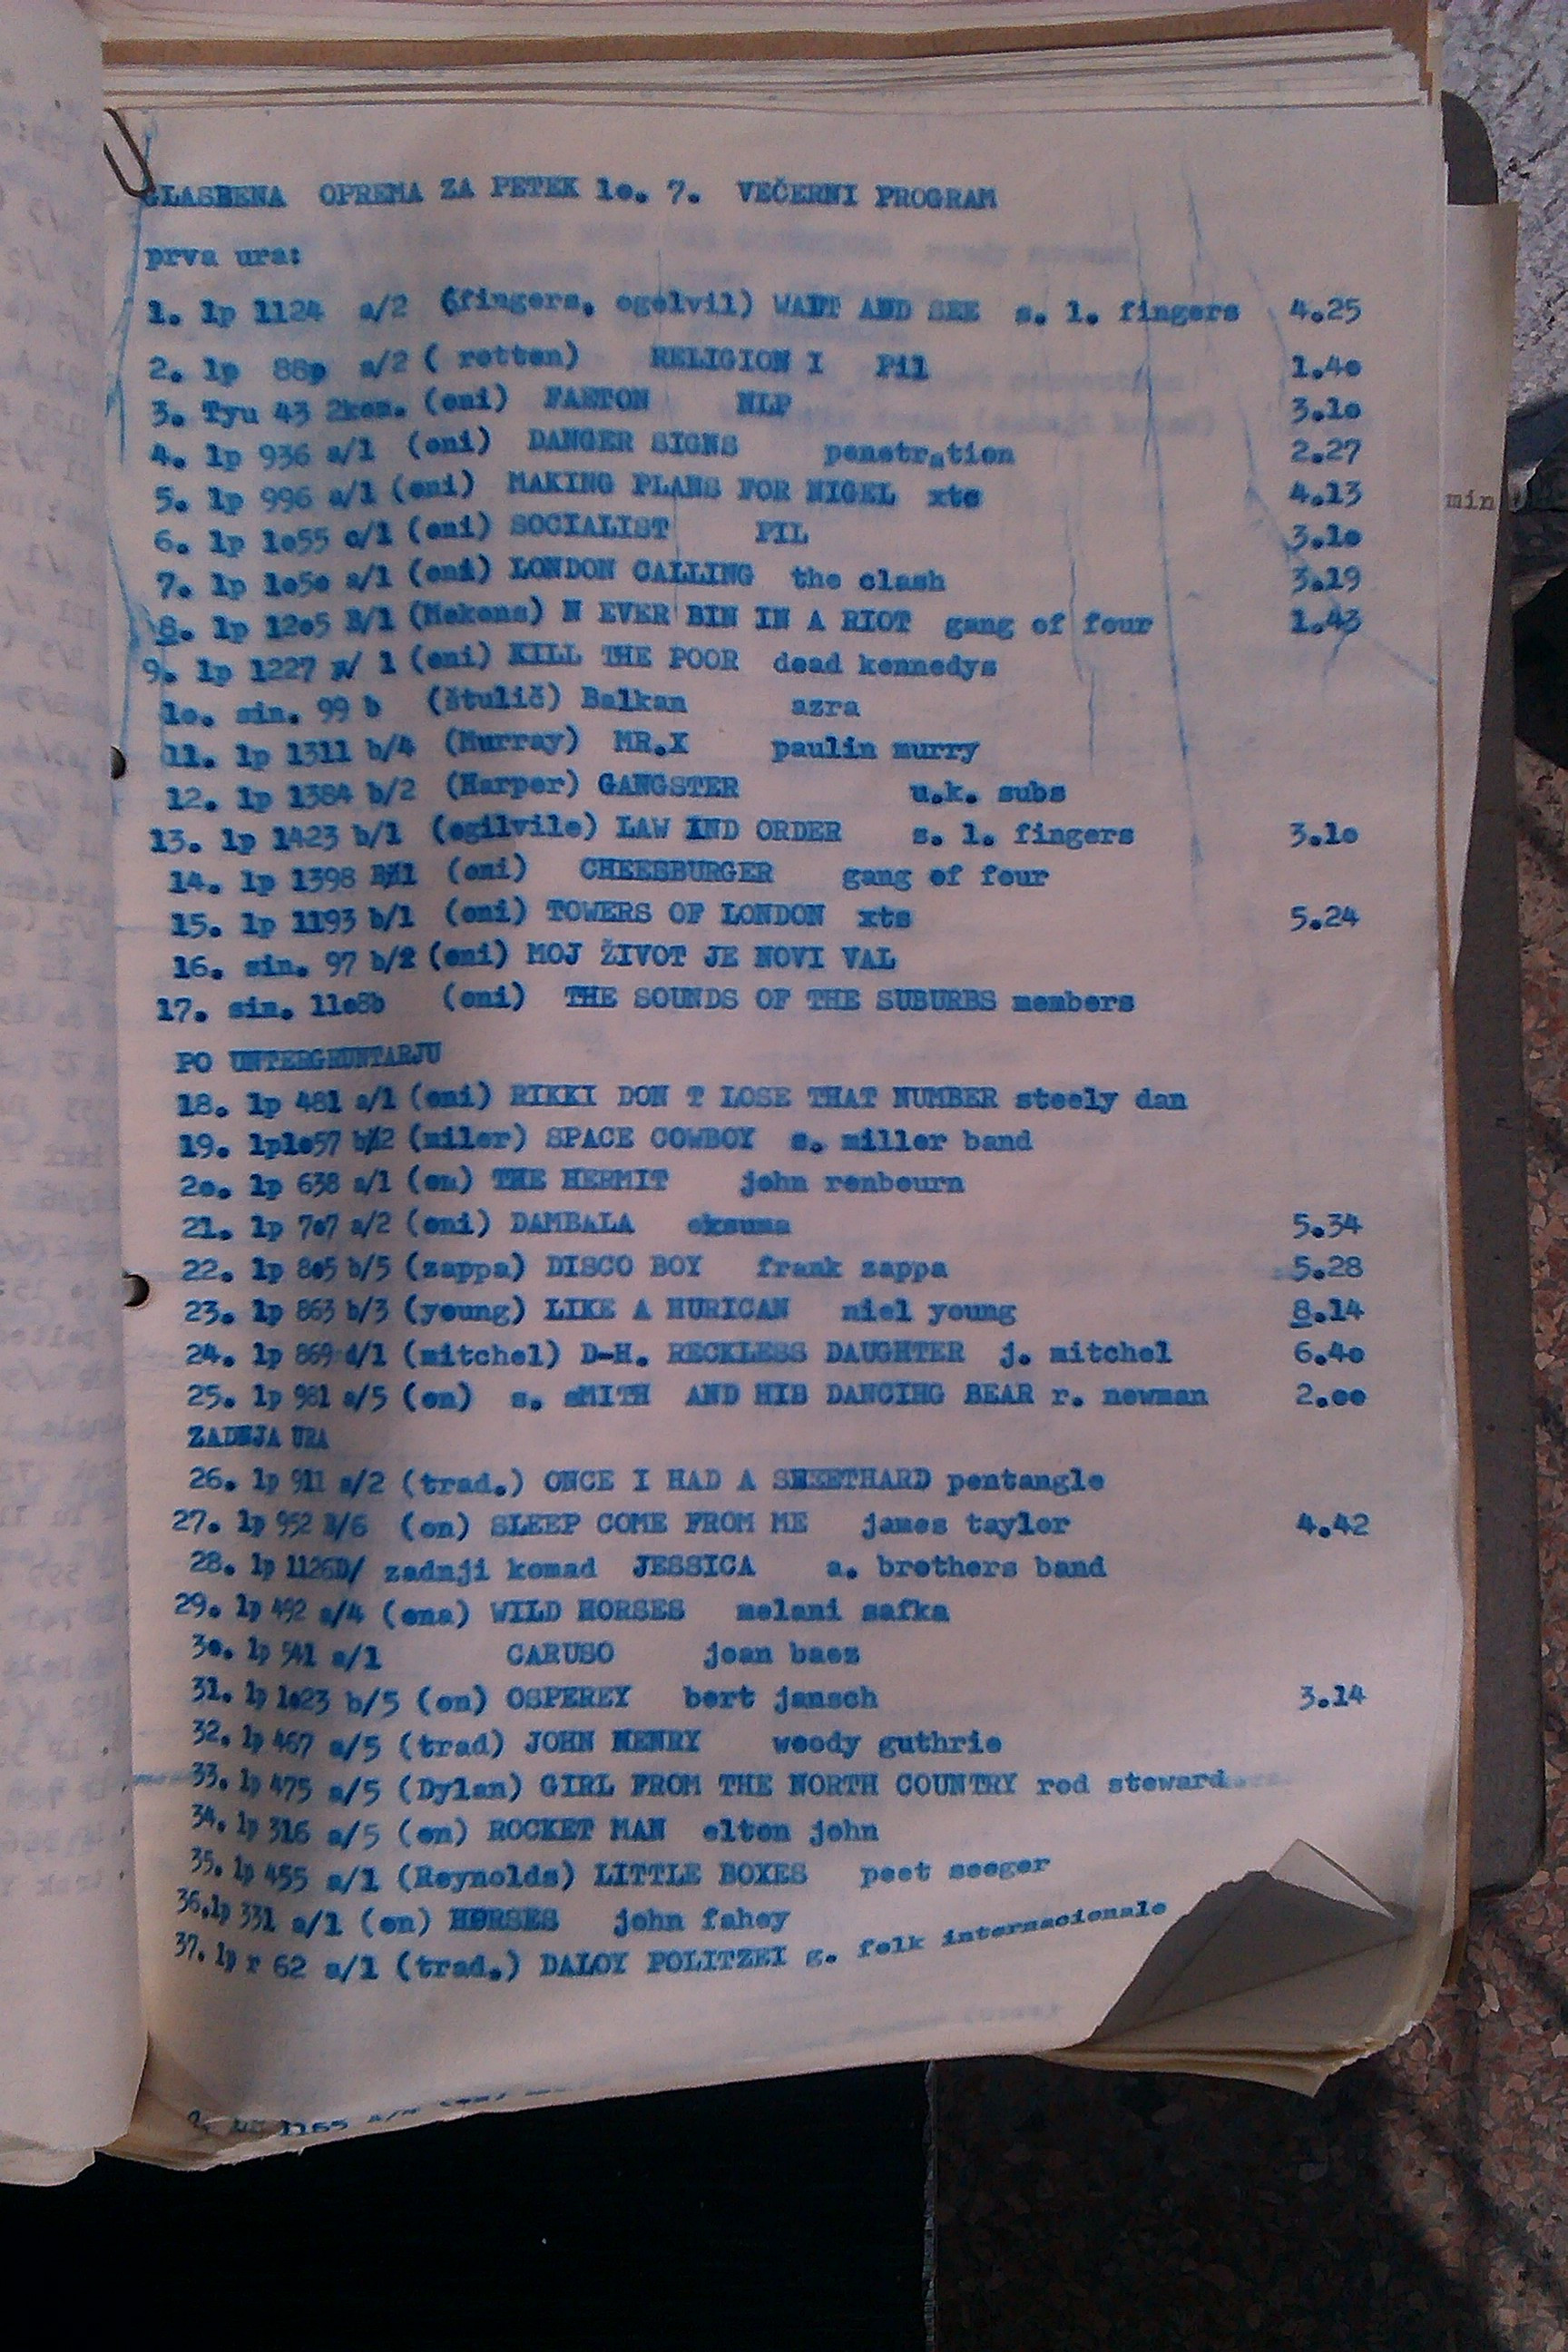 GLASBENA OPREMA ZA PETEK 1o. 7. VEČERNI PROGRAM
prva ura:
1. lp 1124 a/2 (fingers, ogelvil) WAIT AND SEE s. l. fingers 4.25
2. lp 88p a/2 ( rotten) RELIGION I Pil 1.4o
3. Tyu 43 2kom. (oni) FAETON NLP 3.1o
4. lp 936 a/1 (oni) DANGER SIGNS penetration 2.27
5. lp 996 a/1 (oni) MAKING PLANS FOR NIGEL xtc 4.13
6. lp 1o55 c/1 (oni) SOCIALIST PIL 3.1o
7. lp 1o5o a/1 (oni) LONDON CALLING the clash 3.19
8. lp 12o5 B/1 (Mekons) N EVER BIN IN A RIOT gang of four 1.43
9. lp 1227 / 1 (oni) KILL THE POOR dead kennedys
1o. sin. 99 b (štulič) Balkan azra
11. lp 1311 b/4 (Murray) MR.X paulin murry
12. lp 1384 b/2 (Harper) GANGSTER u.k. subs
13. lp 1423 b/1 (ogilvile) LAW AND ORDER s. l. fingers 3.1o
14. lp 1398 B/1 (oni) CHEESBURGER gang of four
15. lp 1193 b/1 (oni) TOWERS OF LONDON xtc 5.24
16. sin. 97 b/2 (oni) MOJ ŽIVOT JE NOVI VAL
17. sin. 11o8b (oni) THE SOUNDS OF THE SUBURBS members
PO UNTERGRUNTARJU
18. lp 481 a/1 (oni) RIKKI DON T LOSE THAT NUMBER steely dan
19. lp1o57 b/2 (miler) SPACE COWBOY s. miller band
2o. lp 638 a/1 (on) THE HERMIT john renbourn
21. lp 7o7 a/2 (oni) DAMBALA eksuma 5.34
22. lp 8o5 b/5 (zappa) DISCO BOY frank zappa 5.28
23. lp 863 b/3 (young) LIKE A HURICAN niel young 8.14
24. lp 869 d/1 (mitchel) D-H. RECKLESS DAUGHTER j. mitchel 6.4o
25. lp 981 a/5 (on) s. sMITH AND HIS DANCING BEAR r. newman 2.oo
ZADNJA URA
26. lp 911 a/2 (trad.) ONCE I HAD A SWEETHARD pentangle
27. lp 952 B/6 (on) SLEEP COME FROM ME james taylor 4.42
28. lp 1126D/ zadnji komad JESSICA a. brothers band
29. lp 492 a/4 (ona) WILD HORSES melani safka
3o. lp 541 a/1 CARUSO joan baez
31. lp 1o23 b/5 (on) OSPEREY bert jansch 3.14
32. lp 467 a/5 (trad) JOHN HENRY woody guthrie
33. lp 475 a/5 (Dylan) GIRL FROM THE NORTH COUNTRY rod steward
34. lp 316 a/5 (on) ROCKET MAN elton john
35. lp 455 a/1 (Reynolds) LITTLE BOXES peet seeger
36.lp 331 a/1 (on) HORSES john fahey
37. lp r 62 a/1 (trad.) DALOY POLITZEI g. folk internacionale
min
1165